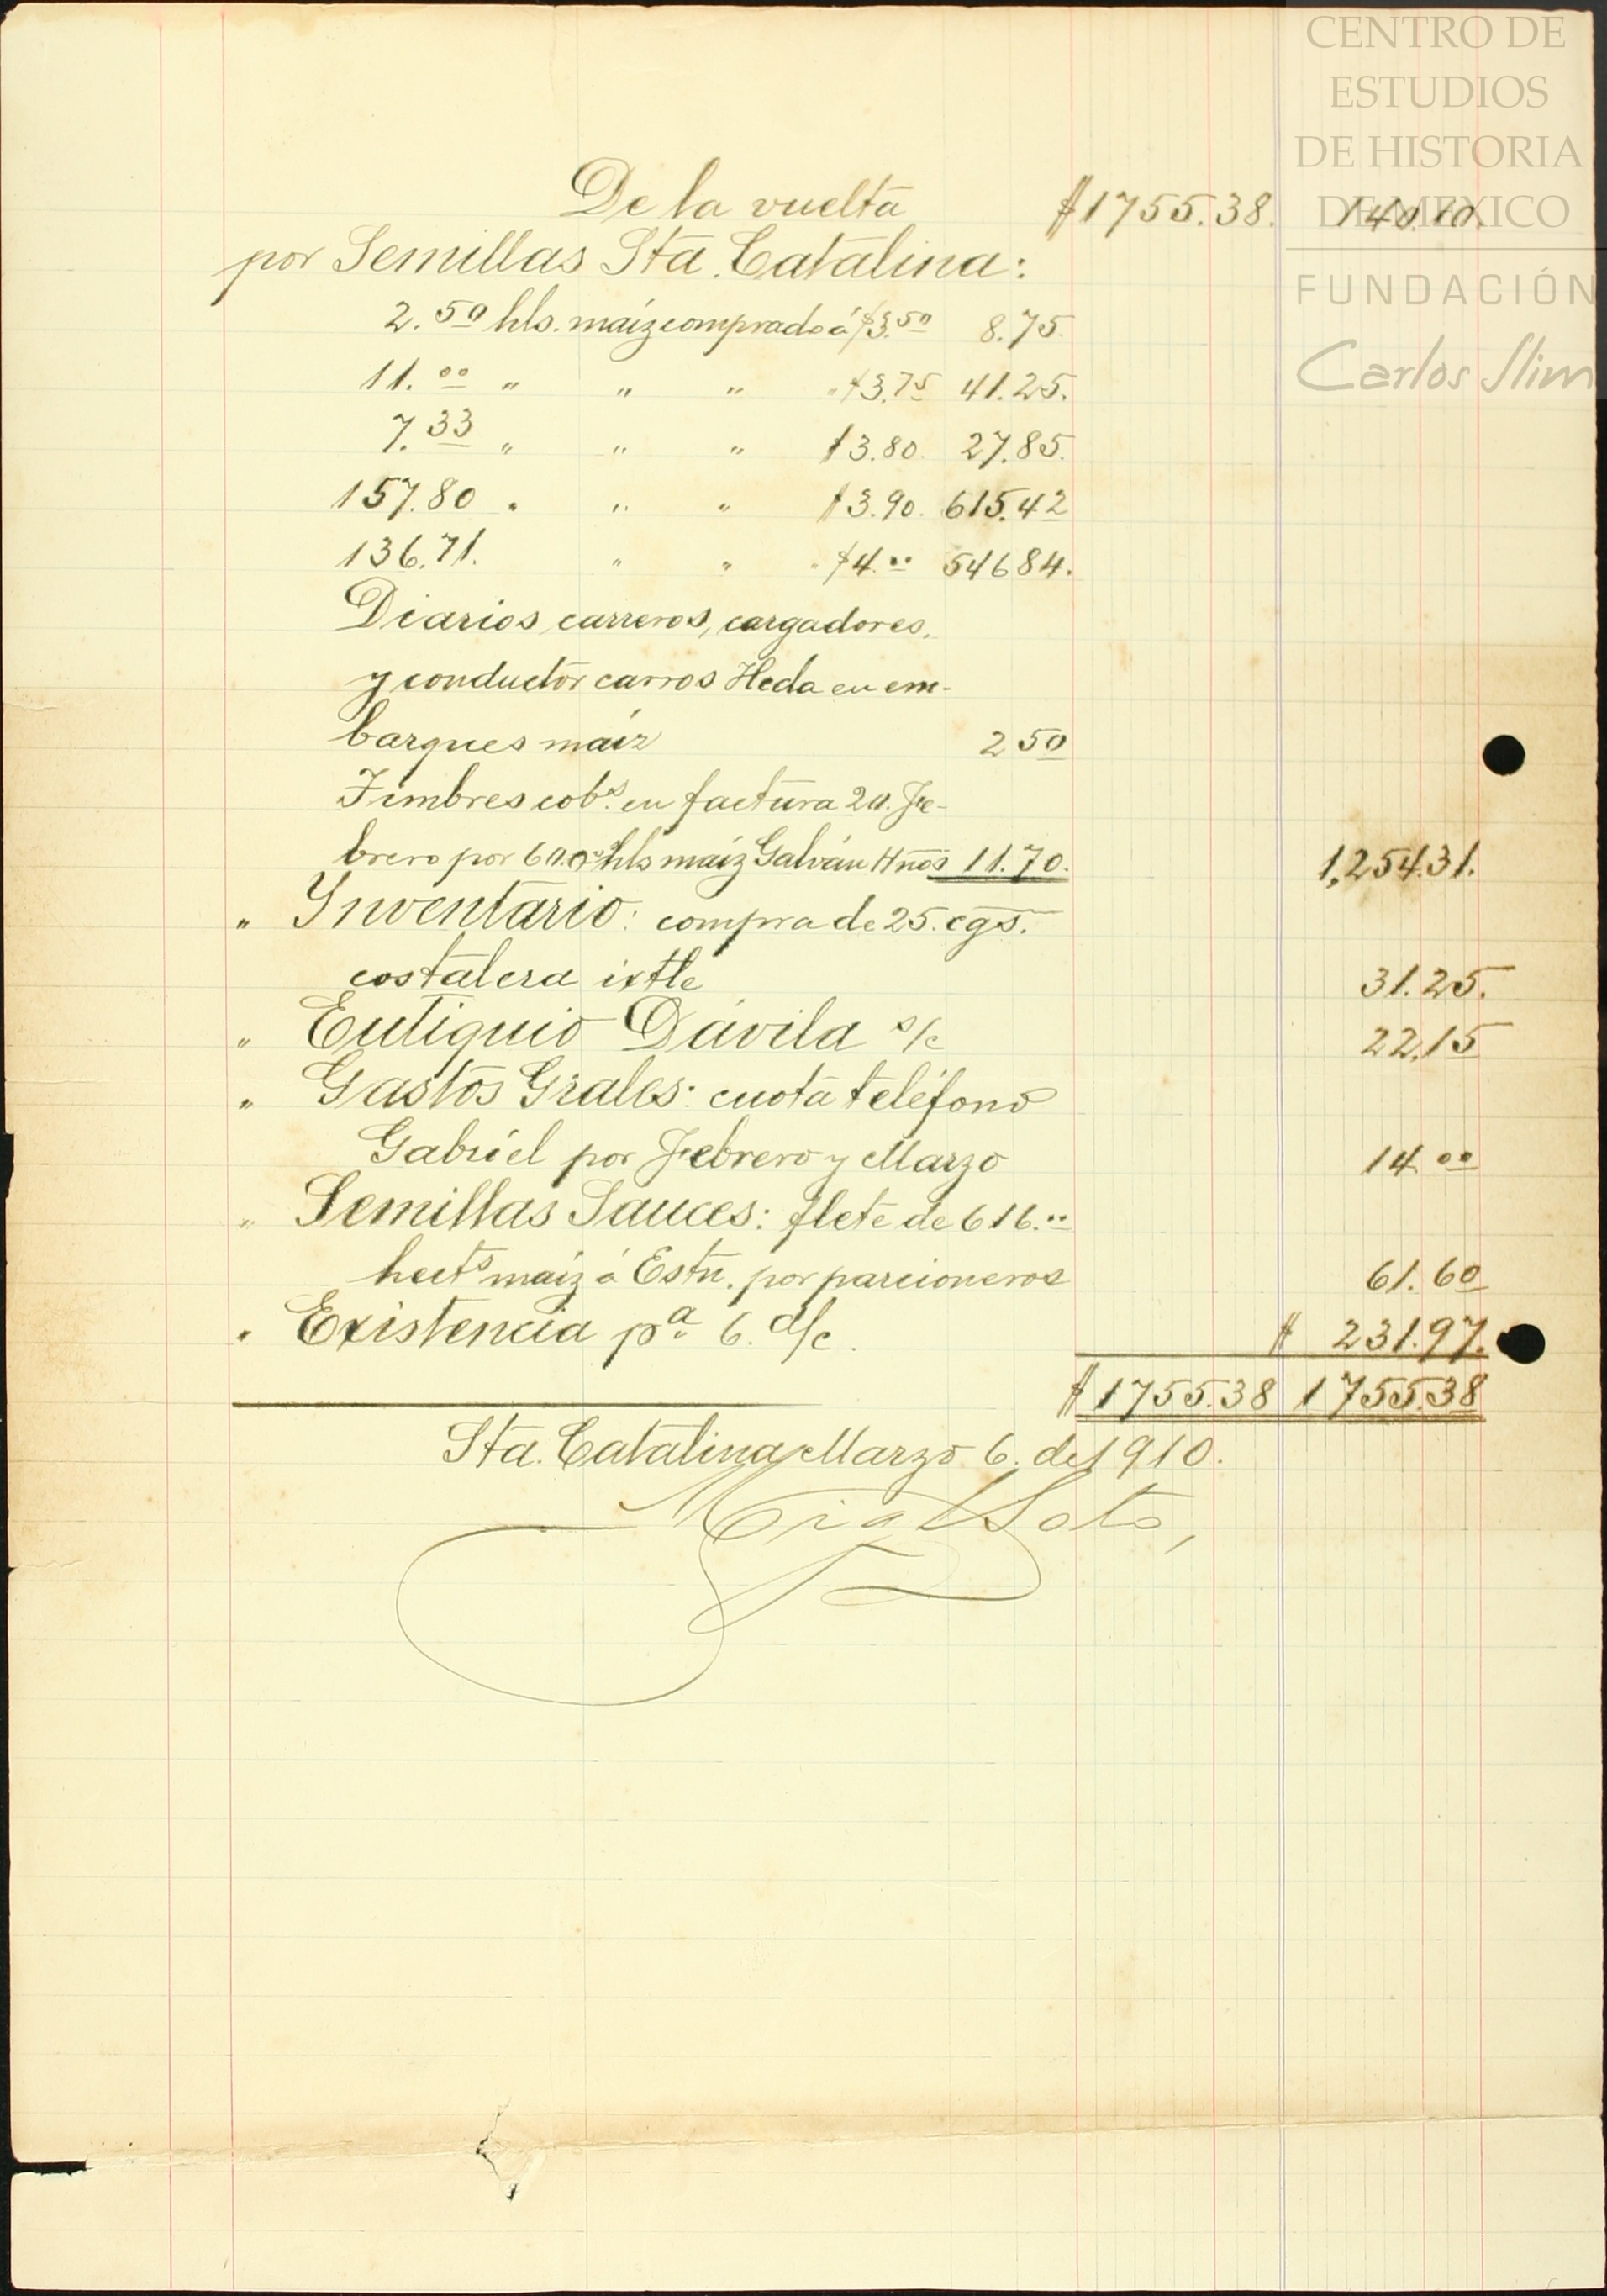 CENTRO DE
ESTUDIOS
DE HISTORIA
DE MEXICO
FUNDACIÓN
Carlos Slim
De la vuelta $1755.38. 140.10.
por Semillas Sta. Catalina:
2.50 hls. maíz comprado á $3.50 8.75.
11.00 " " " " $3.75 41.25.
7.33 " " " $3.80. 27.85.
157.80 " " " $3.90. 615.42
136.71. " " " $4.00 546 84.
Diarios carreros, cargadores,
y conductor carros Hcda en em-
barques maíz 2 50
Timbres cobs. en factura 20. Fe-
brero por 60.00 hls maíz Galván Hnos 11.70. 1,254.31.
" Inventario: compra de 25. cgs.
costalera ixtle 31.25.
" Eutiquio Dávila s/c 22.15
" Gastos Grales: cuota teléfono
Gabriel por Febrero y Marzo 14.00
" Semillas Sauces: flete de 616.00
hects maíz á Estn. por parcioneros 61.60
" Existencia pa. 6. d/c. $ 231.97.
$1755.38 1755.38
Sta. Catalina Marzo 6. de 1910.
Migl Soto,